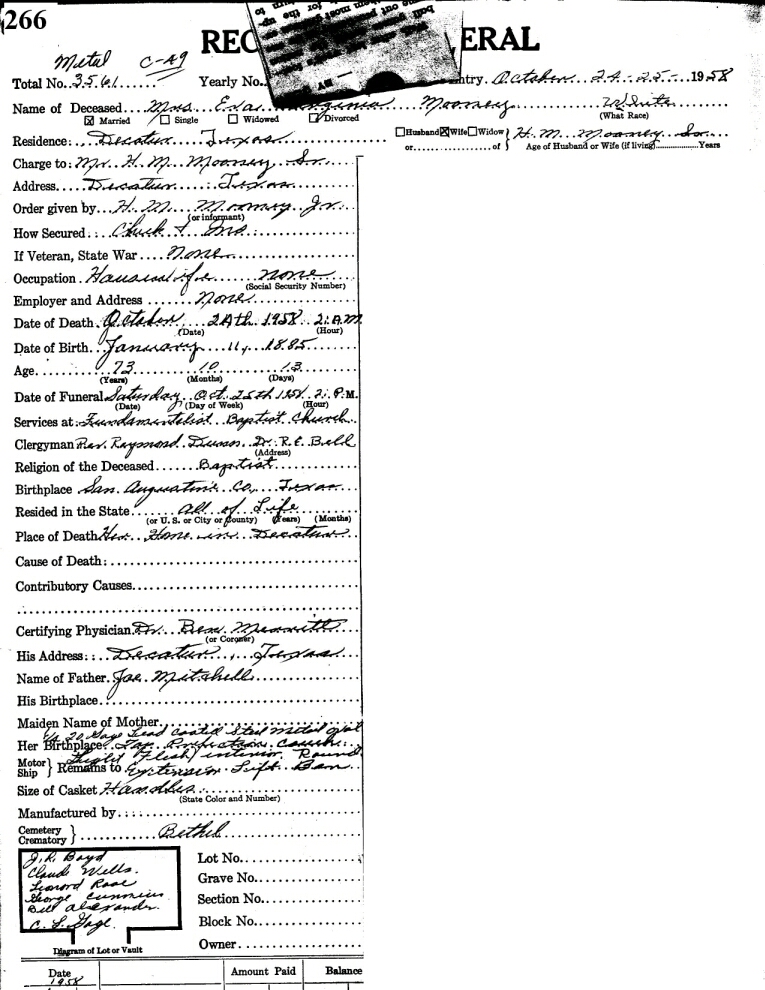 266
REC ERAL
Metal C-A9
Total No. 3561 Yearly No. ntry. October 24-25 1958
Name of Deceased Mrs. Eva Mooney White
Married Single Widowed Divorced (What Race)
Residence: Decatur Texas Husband Wife Widow } H. M. Mooney Sr.
or of Age of Husband or Wife (if living) Years
Charge to: Mr. H. M. Mooney Sr.
Address Decatur Texas
Order given by H. M. Mooney Jr.
(or informant)
How Secured: Chuck & Ins
If Veteran, State War None
Occupation Housewife none
(Social Security Number)
Employer and Address None
Date of Death October 24th 1958 2: A.M
(Date) (Hour)
Date of Birth January 11, 1885
Age 73 10 13
(Years) (Months) (Days)
Date of Funeral Saturday Oct. 25th 1958 2: P.M.
(Date) (Day of Week) (Hour)
Services at Fundamentalist Baptist Church
Clergyman Rev. Raymond Dr. R.E. Bell
(Address)
Religion of the Deceased Baptist
Birthplace San. Augustine Co, Texas
Resided in the State all of Life
(or U. S. or City or County) (Years) (Months)
Place of Death Her Home in Decatur
Cause of Death:
Contributory Causes
Certifying Physician Dr. Ben Merritt
(or Coroner)
His Address: Decatur, Texas
Name of Father Joe Mitchell
His Birthplace
Maiden Name of Mother
20 Gage Lead coated Steel metal
Her Birthplace
Light Flesh interior. Round
Motor Ship } Remains to Extension Lift Bar
Size of Casket Handles
(State Color and Number)
Manufactured by
Cemetery Crematory } Bethel
J. R. Boyd
Claude Wells.
Leonord Rose
George Cummins
Bill Alexander.
C. L. Gage.
Diagram of Lot or Vault
Lot No.
Grave No.
Section No.
Block No.
Owner
Date Amount Paid Balance
1958